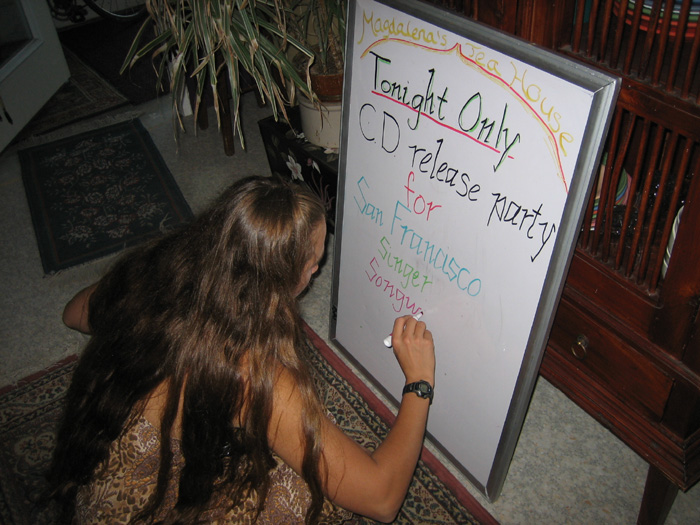 Magdalena's Tea House
Tonight Only
CD release party
for
San Francisco
Singer
Songw